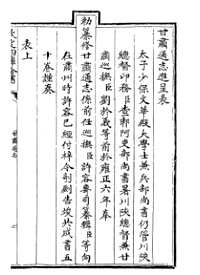 甘肅通志進呈表
太子少保文華殿大學士兼兵部尚書仍管川陝
總督印務臣查郎阿吏部尚書署川陝總督兼甘
肅巡撫臣劉於義等前於雍正六年奉
勅纂修甘肅通志係前任巡撫臣許容專司纂輯臣等向
在肅州時許容已經付梓今剞劂告竣共成書五
十卷謹奉
表上
欽定四庫全書
甘肅通志